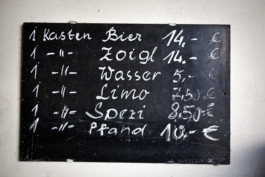 1 Kasten Bier 14,- €
1 -"- Zoigl 14.- €
1 -"- Wasser 5,- €
1 -"- Limo 7,50 €
1 -"- Spezi 8,50 €
1 -"- Pfand 10,- €